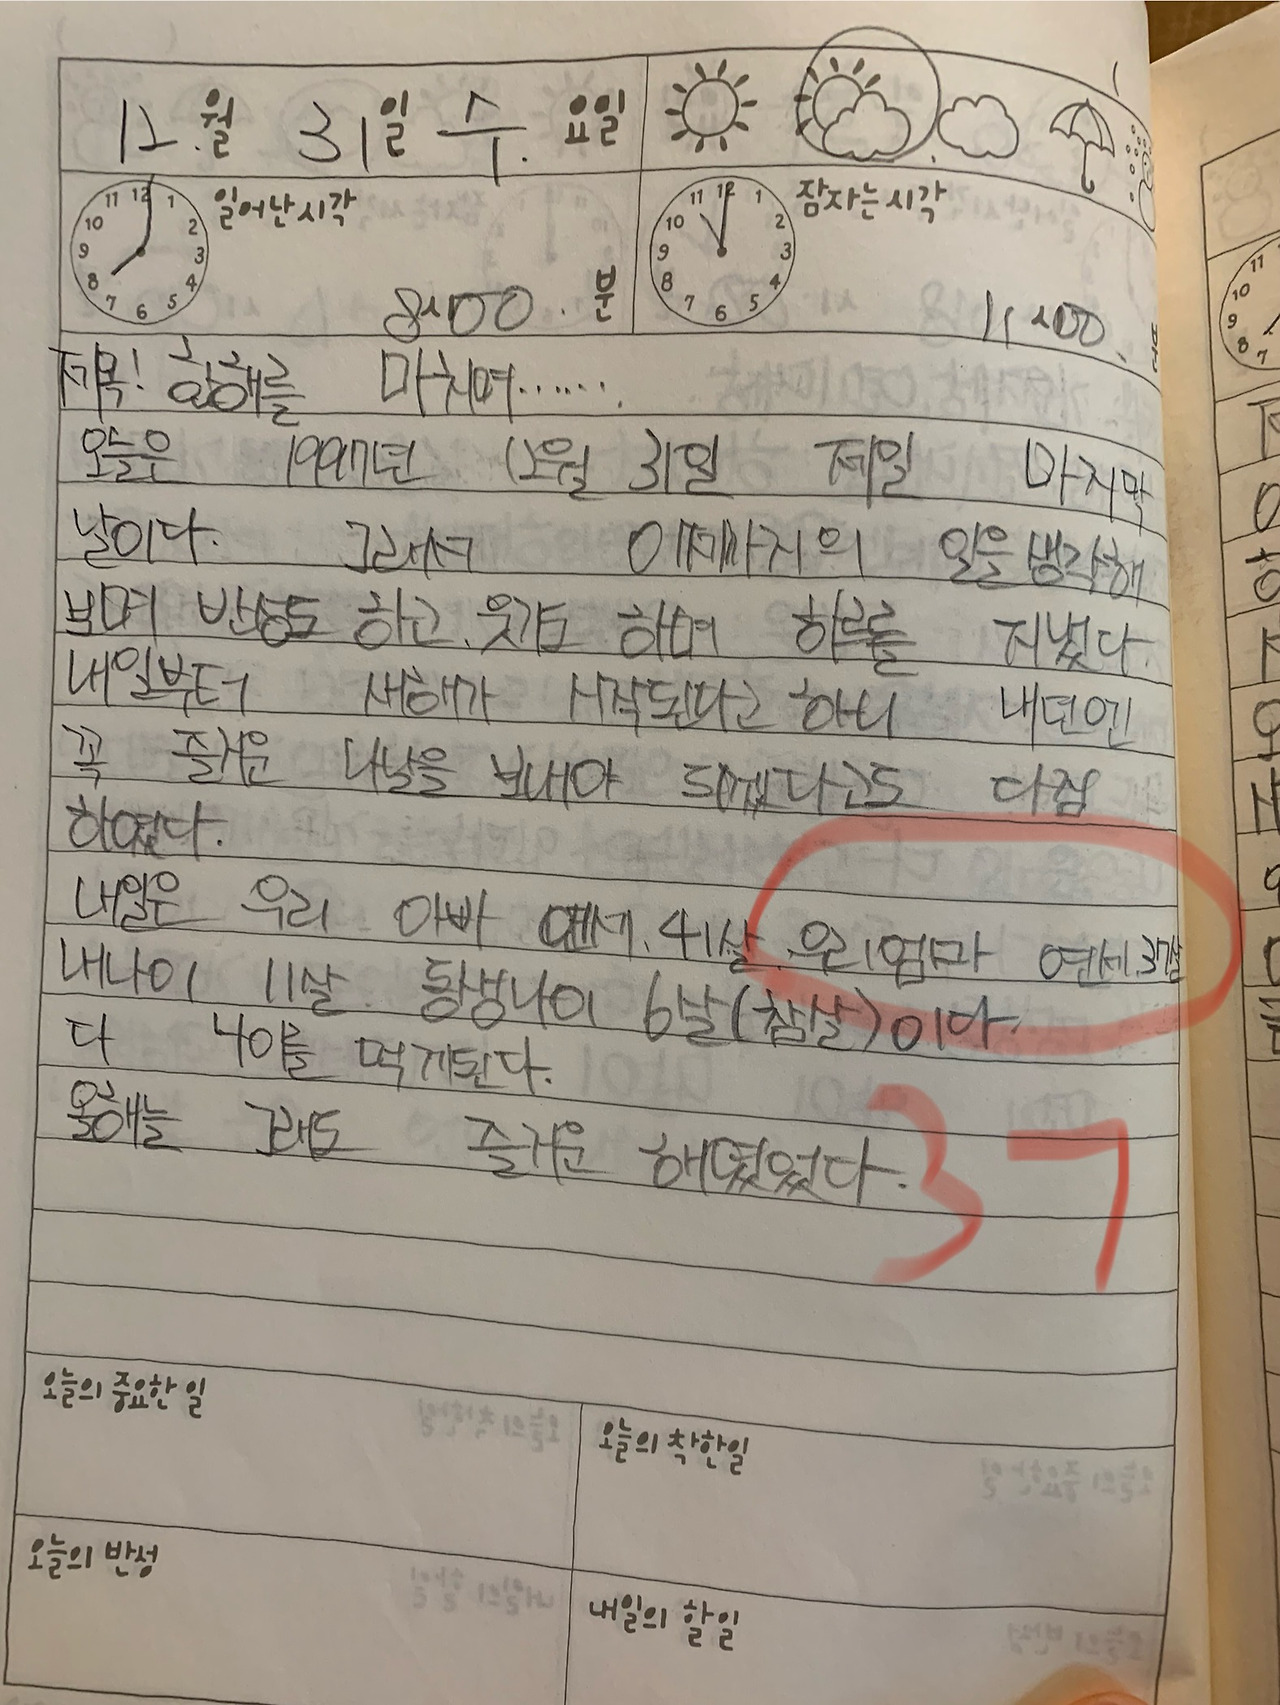 12.월 31일 수. 요일
일어난시각
8시00.분
잠자는시각
11시00.
제목! 한해를 마치며.......
오늘은 1997년 12월 31일 제일 마지막
날이다. 그래서 이제까지의 일을 생각해
보며 반성도 하고, 웃기도 하며 하루를 지냈다.
내일부터 새해가 시작된다고 하니 내년엔
꼭 즐거운 나날을 보내야 되겠다고도 다짐
하였다.
내일은 우리 아빠 연세. 41살. 우리 엄마 연세.37살
내나이 11살. 동생나이 6날(참살)이다.
다 나이를 먹게된다.
올해는 그래도 즐거운 해였었다.
37
오늘의 중요한 일
오늘의 착한일
오늘의 반성
내일의 할일